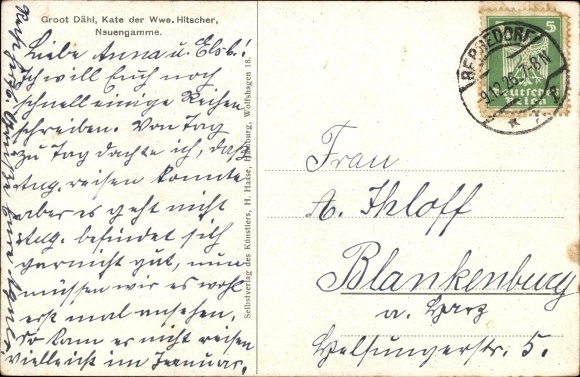 Groot Dähl, Kate der Wwe. Hitscher,
Neuengamme.
Liebe Anna u. Elsb.!
Ich will Euch noch
schnell einige Reihen
schreiben. Von Tag
zu Tag dachte ich, daß
Aug. reisen konnte
aber es geht nicht
Aug. befindet sich
garnicht gut, nun
müssen wir es wohl
erst mal ansehen,
so kann er nicht reisen
vielleicht im Jeanuar.
Selbstverlag des Künstlers, H. Haase, Hamburg, Wolfshagen 18.
BERGEDORF
9.12.26. 7-8 N
5
Deutsches
Reich
Frau
A. Ihloff
Blankenburg
a. Harz
Helsungerstr. 5.